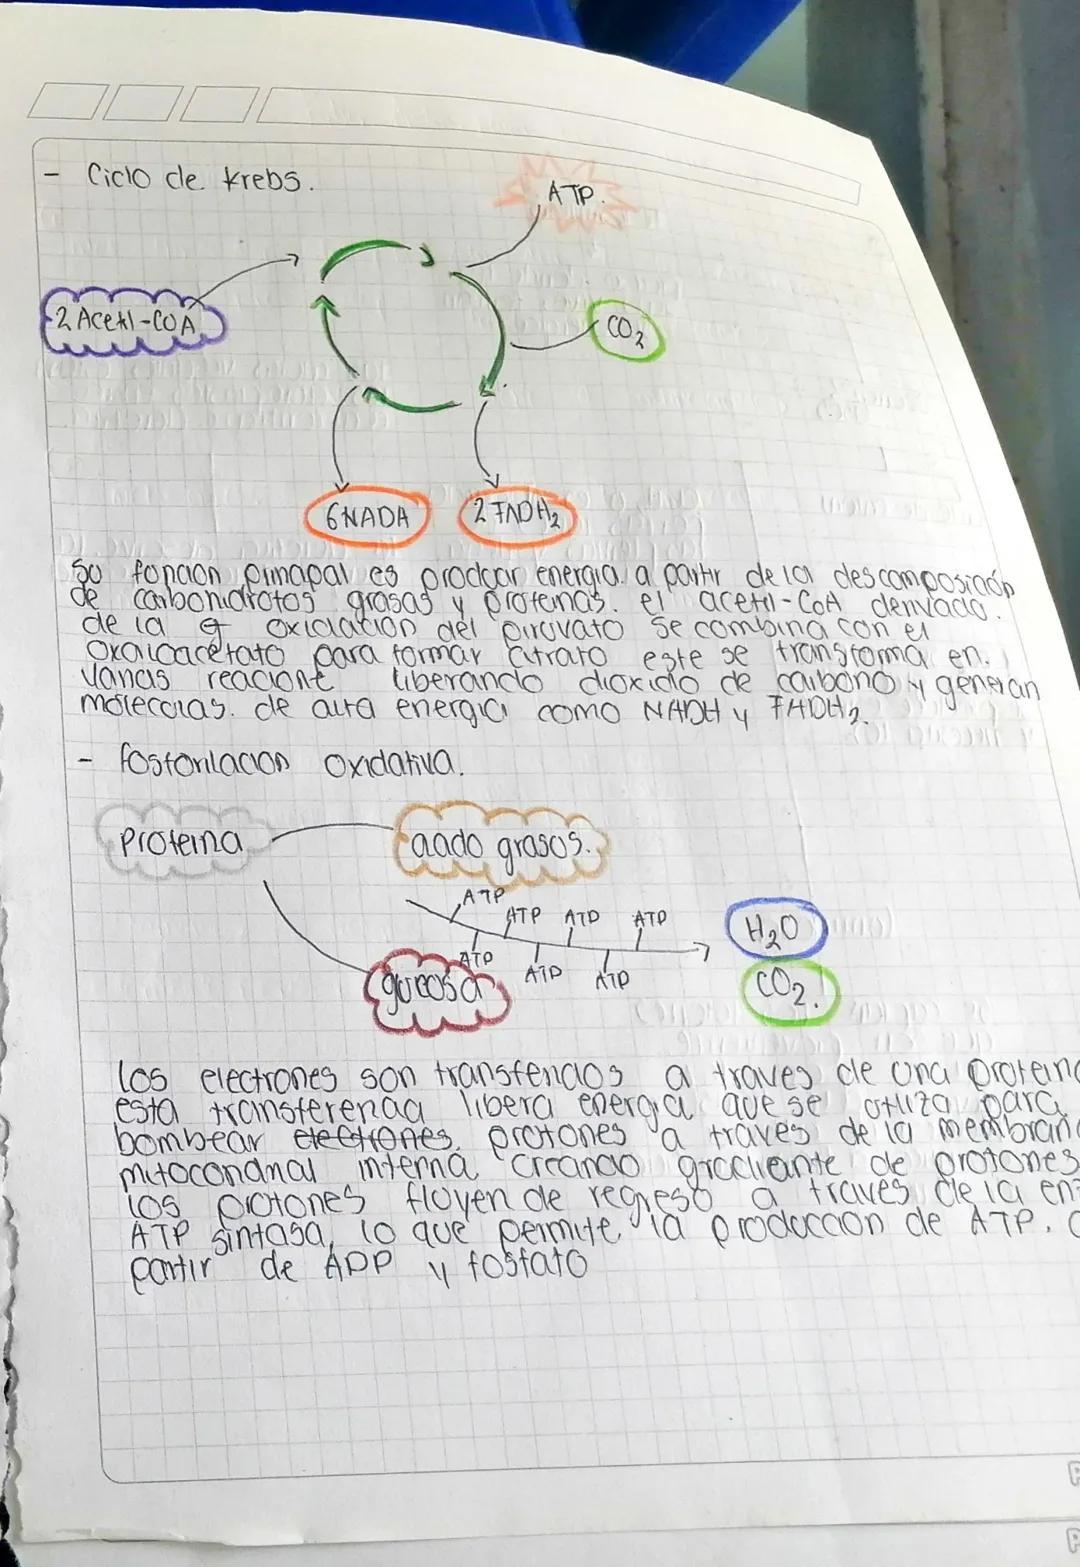 - Ciclo de Krebs.
ATP.
2 Acetil-COA
CO2
6NADA
2 FADH2
Su funcion principal es producir energia. a partir de la descomposición
de carbohidratos grasas y proteinas. el acetil-CoA derivado.
de la oxidación del piruvato se combina con el
oxaloacetato para formar citrato este se transforma en.
varias reacione liberando dioxido de carbono y generan
moleculas. de alta energia como NADH y FADH2.
- fosforilacion oxidativa.
proteina
acido grasos.
ATP
ATP ATP ATP
ATP ATP ATP
glucosa
H2O
CO2.
Los electrones son transferidos a traves de una protein
esta transferencia libera energia que se utiliza para
bombear electrones. protones a traves de la membran
mitocondrial interna creando gradiante de protones
los protones fluyen de regreso a traves de la en
ATP sintasa, lo que permite la produccion de ATP.
partir de ADP y fosfato